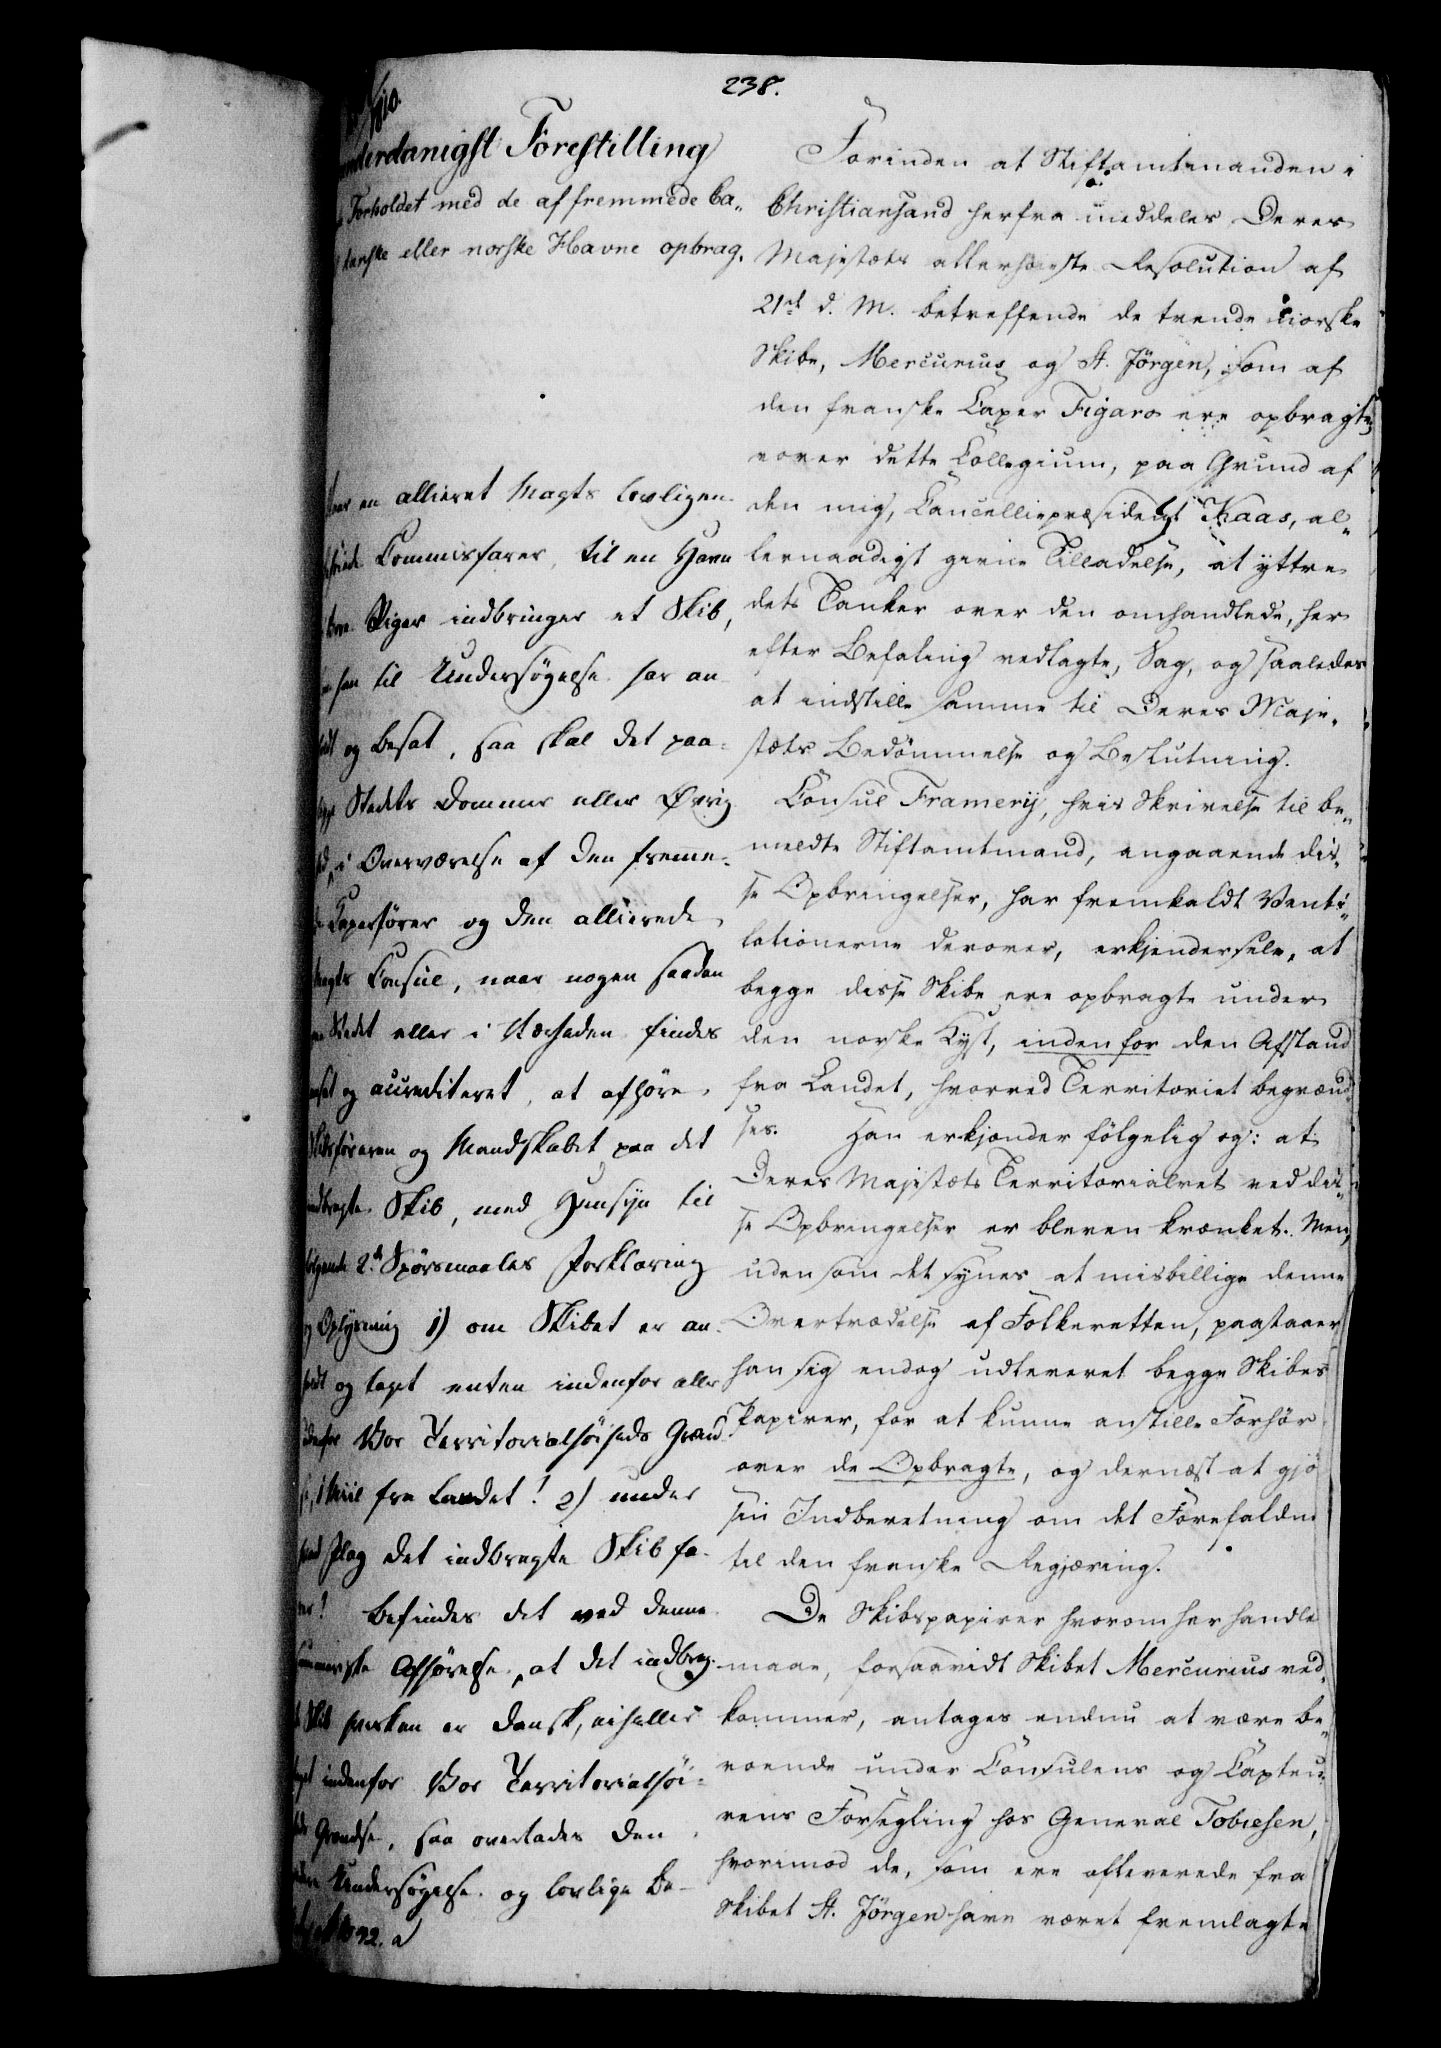 238.
1810.
underdanigst Forestilling
Forholdet med de af fremmede Ca„
danske eller norske Havne opbrag„
en allieret Magts lovligen
Commissarer, til en Havn
Riger indbringer et Skib,
han til Undersøgelse har an-
og besat, saa skal det paa-
Stedets Dommer eller Øvrig
i Overværelse af den fremme-
Caperfører og den allierede
Magts Consul, naar nogen saadan
Stedet eller i Nærheden findes
og accrediteret, at afhøre
Skibsføreren og Mandskabet paa det
indbragte Skib, med Hensyn til
følgende 2de Spørsmaales Forklaring
og Oplysning 1) om Skibet er an-
og taget enten indenfor eller
udenfor Vor Territorialhøiheds Grænd-
1 Miil fra Landet! 2) under
Flag det indbragte Skib fa-
rer? Befindes det ved denne
summariske Afhørelse, at det indbrag-
Skib hverken er dansk, ei heller
taget indenfor Vor Territorialhøi-
Grændse, saa overlades den
Undersøgelse og lovlige Be-
Forinden at Stiftamtmanden i
Christiansand herfra meddeles Deres
Majestæts allerhøieste Resolution af
21de d. M. betreffende de tvende norske
Skibe, Mercurius og St. Jørgen, som af
den franske Caper Figaro ere opbragte,
vover dette Collegium, paa Grund af
den mig, Cancellipræsident Kaas, al„
lernaadigst givne Tilladelse, at yttre
dets Tanker over den omhandlede, her
efter Befaling vedlagte, Sag, og saaledes
at indstille samme til Deres Maje„
stæts Bedømmelse og Beslutning.
Consul Framery, hvis Skrivelse til be„
meldte Stiftamtmand, angaaende dis„
se Opbringelser, har fremkaldt Venti„
lationerne derover, erkjender selv, at
begge disse Skibe ere opbragte under
den norske Kyst, inden for den Afstand
fra Landet, hvorved Territoriet begrænd„
ses. Han erkjender følgelig og: at
Deres Majestæts Territorialret ved dis„
se Opbringelser er bleven krænket. Men,
uden som det synes at misbillige denne
Overtrædelse af Folkeretten, paastaaer
han sig endog udleveret begge Skibes
Papirer, for at kunne anstille Forhør
over de Opbragte, og dernæst at gjø
sin Indberetning om det Forefaldne
til den franske Regjæring.
De Skibspapirer hvorom her handle
maae, forsaavidt Skibet Mercurius ved„
kommer, antages endnu at være be„
roende under Consulens og Capteu„
rens Forsegling hos General Tobiesen,
hvorimod de, som ere afleverede fra
Skibet St. Jørgen have været fremlagte